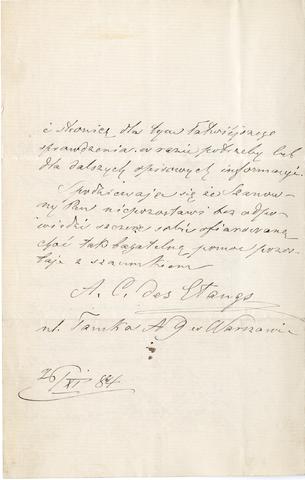 i stronicę dla tym łatwiejszego
sprawdzenia w razie potrzeby lub
dla dalszych opisowych informacyi.
Spodziewając się że Szanow-
ny Pan niepozostawi bez odpo-
wiedzi szczerze sobie ofiarowaną
choć tak bagatelną pomoc pozos-
taje z szacunkiem
A. C. des Etangs
ul. Tamka № 9 w Warszawie
26/XI 884